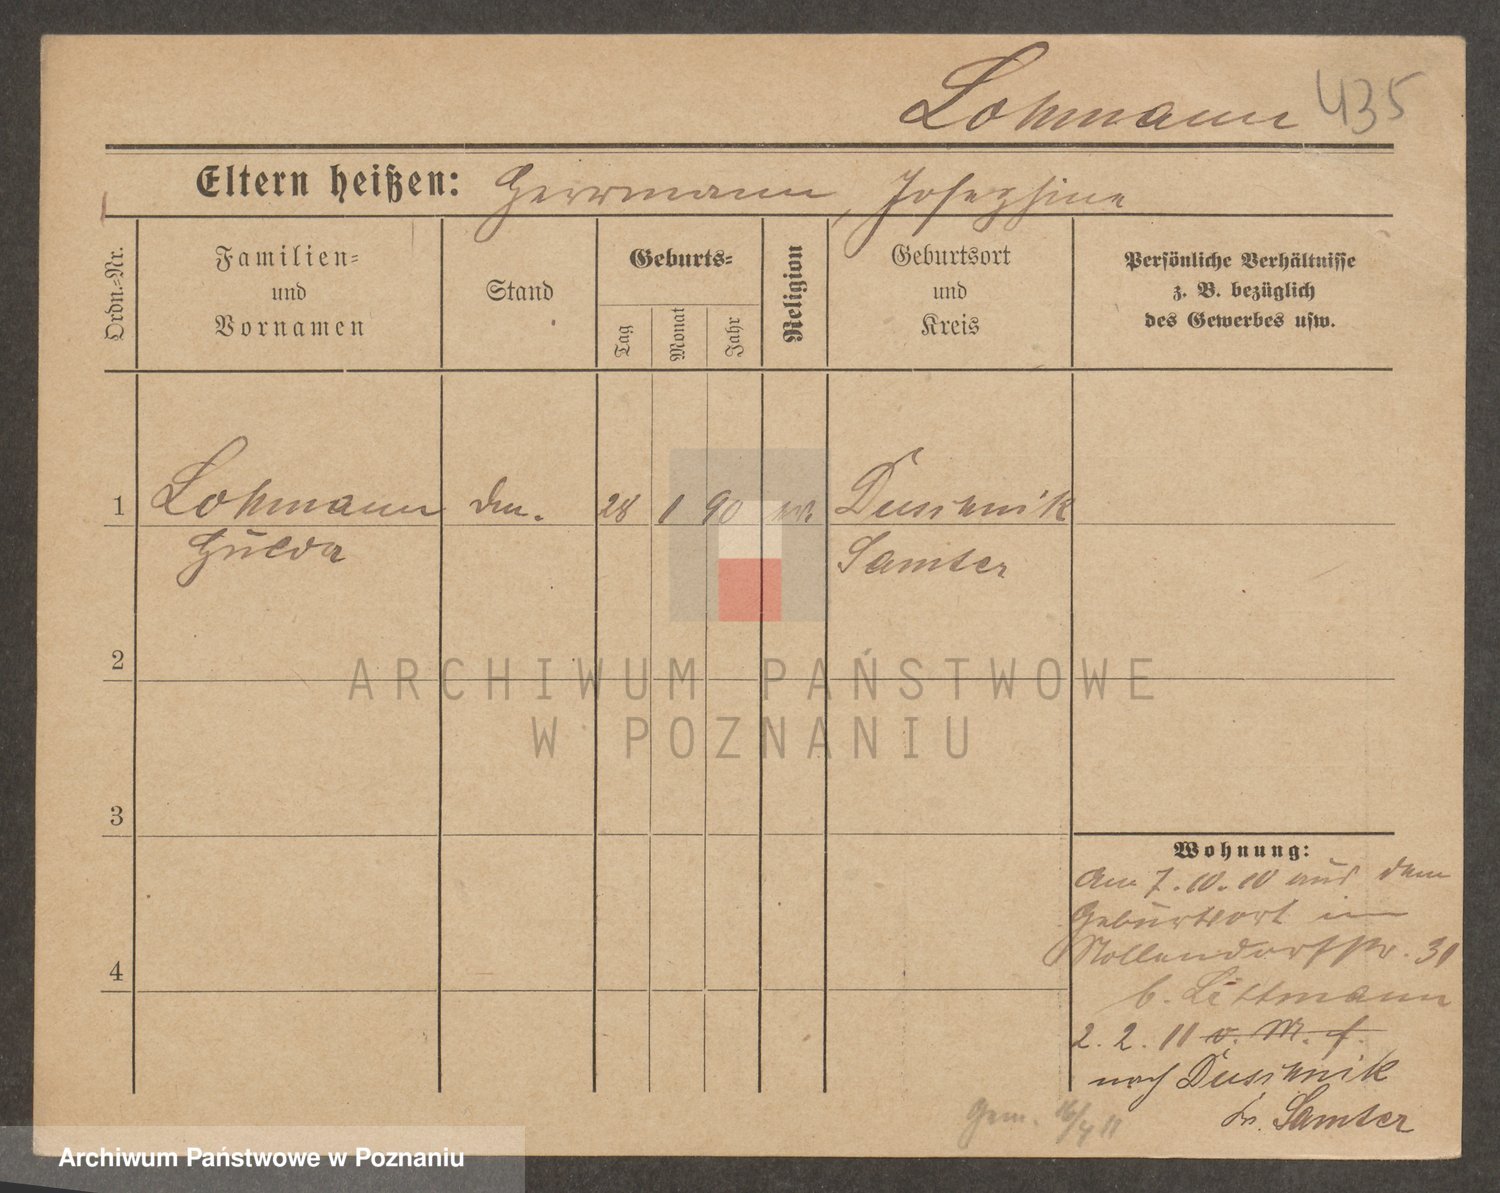 Lohmann 435
Eltern heißen: Herrmann, Josephine
Ordn.=Nr.
Familien=
und
Vornamen
Stand
Geburts=
Tag
Monat
Jahr
Religion
Geburtsort
und
Kreis
Persönliche Verhältnisse
z. B. bezüglich
des Gewerbes usw.
1 Lohmann 28 1 90 Duschnik
Hulda Samter
2
ARCHIWUM PAŃSTWOWE
W POZNANIU
3
Wohnung:
Am 7.10.10 aus dem
Geburtsort in
Nollendorfstr. 31
b. Littmann
2. 2. 11 v. M. f.
nach Duschnik
Kr. Samter
Gem. 16/4 11
4
Archiwum Państwowe w Poznaniu